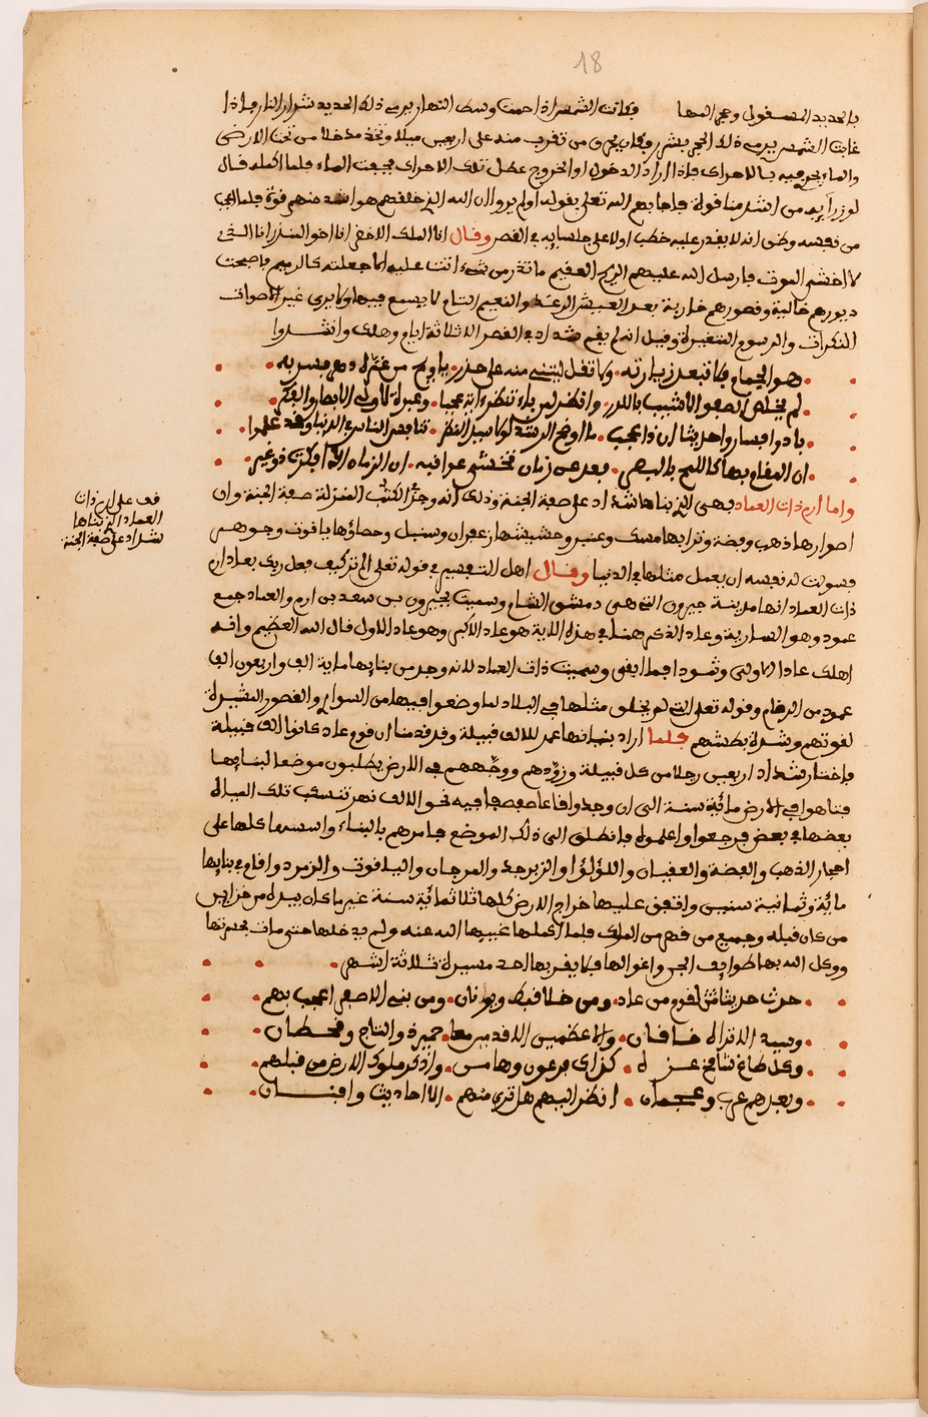 18
بالحديد المصقول وحجر المها فكانت الشمس اذا احمت وسط النهار يرمي ذلك الحديد شرار النار فاذا
غابت الشمس يرمي ذلك الحجر بشرر وكان يحرق من تقرب منه على اربعين ميلا وتخذ مدخلا من تحت الارض
والماء يجري فيه بالاحراك فاذا اراد الدخول او الخروج عطل تلك الاحراك فلما اكمله قال
لوزرايه من اشد منا قوة فاجابهم الله تعلى بقوله اولم يروا ان الله الذي خلقهم هو اشد منهم قوة فلما اعجب
من نفسه وظن انه لا يقدر عليه خطب اولا على جلسايه في القصر وقال انا الملك انا اخو
لا اخشى الموت فارسل الله عليهم الريح العقيم ما تذر من شيء اتت عليه الا جعلته كالرميم فاصبحت
ديورهم خالية وقصورهم خاربة بعد العيش الرغد والنعيم التام لا يسمع فيها ولا يرى غير الاصوات
المنكرات والرسوم المتغيرة وقيل انه لم يقم شداد في القصر الا ثلاثة ايام وهلك وانشدوا
هو الحمام فلا تبعد زيارته ولا تقل ليتني منه على حذر يا ويح من غره دهر فسر به
لم يخلص الصفو الا شيب بالكدر وانظر لمن باد تنظر ءاية عجبا وعبرة لاولي الابصار والفكر
بادوا فصاروا حديثا ان ذا عجب ما اوضح الرشد لولا سيئ النظر تنافس الناس في الدنيا وقد علموا
ان المقام بها كاللمح بالبصر
واما ارم ذات العماد فهي التي بناها شداد على صفة الجنة وذلك انه وجد في الكتب المنزلة صفة الجنة وان
اسوارها ذهب وفضة وترابها مسك وعنبر وحشيشها زعفران وسنبل وحصاؤها ياقوت وجوهر
فسولت له نفسه ان يعمل مثلها في الدنيا وقال اهل التفسير في قوله تعلى الم تر كيف فعل ربك بعاد ارم
ذات العماد انها مدينة جيرون التي هي دمشق الشام وسميت بجيرون بن سعد بن ارم والعماد جمع
عمود وهو السارية وعاد الذكر هنا في هذه الاية هو عاد الاكبر وهو عاد الاول قال الله العظيم وانه
اهلك عادا الاولى وثمودا فما ابقى وسميت ذات العماد لانه وجد من بنايها ماية الف واربعون الف
عمود من الرخام وقوله تعلى التي لم يخلق مثلها في البلاد لما وضعوا فيها من السوار والقصور المشيدة
لقوتهم وشدة بطشهم فلما اراد بنيانها عمد للالف قبيلة وقد قدمنا ان قوم عاد كانوا الف قبيلة
فاختار شداد اربعين رجلا من كل قبيلة وزودهم ووجههم في الارض يطلبون موضعا لبنايها
فتاهوا في الارض مائة سنة الى ان وجدوا قاعا صفصفا فيه نحو الالف نهر تنسكب تلك المياه
بعضها في بعض فرجعوا واعلموه فانطلق الى ذلك الموضع فامرهم بالبناء واسسها كلها على
احجار الذهب والفضة والعقيان واللؤلؤ والزبرجد والمرجان والياقوت والزمرد واقام في بنايها
مائة وثمانية سنين وانفق عليها خراج الارض كلها ثلاثمائة سنة غير ما كان بيده من خزاين
من كان قبله وجميع من قهر من الملوك فلما اكملها غيبها الله عنه ولم يدخلها حتى مات بحسرتها
ووكل الله بها طوايف الجن واغوالها فلا يقربها احد مسيرة ثلاثة اشهر
حدث حديثا لقوم من عاد ومن خلا قبط ويونان ومن بني الاصفر اعجب بهم
وسيد الاتراك خاقان والاعظمين الاقدمين معا حميرة والتاج وقحطان
وكل طاغ شامخ عزه كذاك فرعون وهامن واذكر ملوك الارض من قبلهم
وبعدهم عرب وعجمان انظر اليهم هل ترى منهم الا احاديث وافنان
قف على ارم ذات
العماد التي بناها
شداد على صفة الجنة